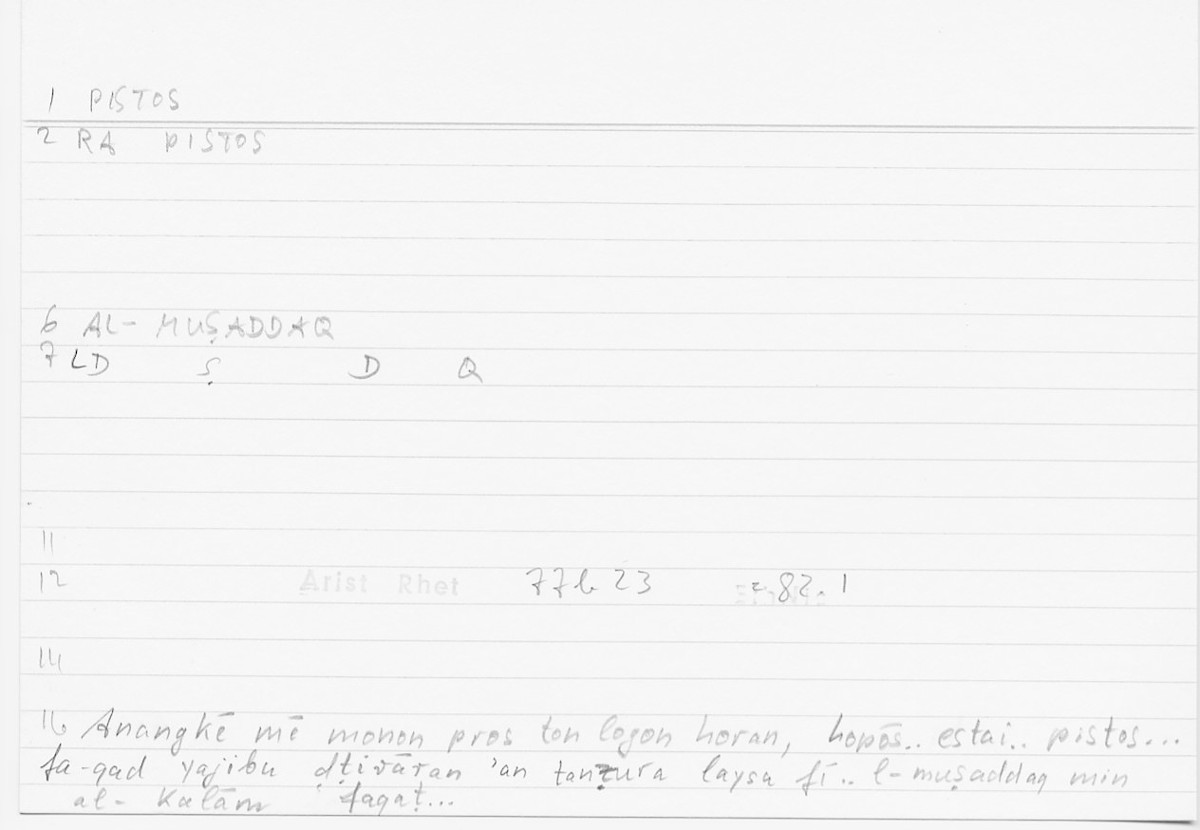 1 PISTOS
2 RA PISTOS
6 AL- MUṢADDAQ
7 LD Ṣ D Q
11
12 Arist Rhet 77b 23 = 82.1
14
16 Anangkē mē monon pros ton logon horan, hopōs.. estai.. pistos...
fa-qad yajibu ḍṭirāran 'an tanẓura laysa fī.. l-muṣaddaq min
al- Kalām faqaṭ...